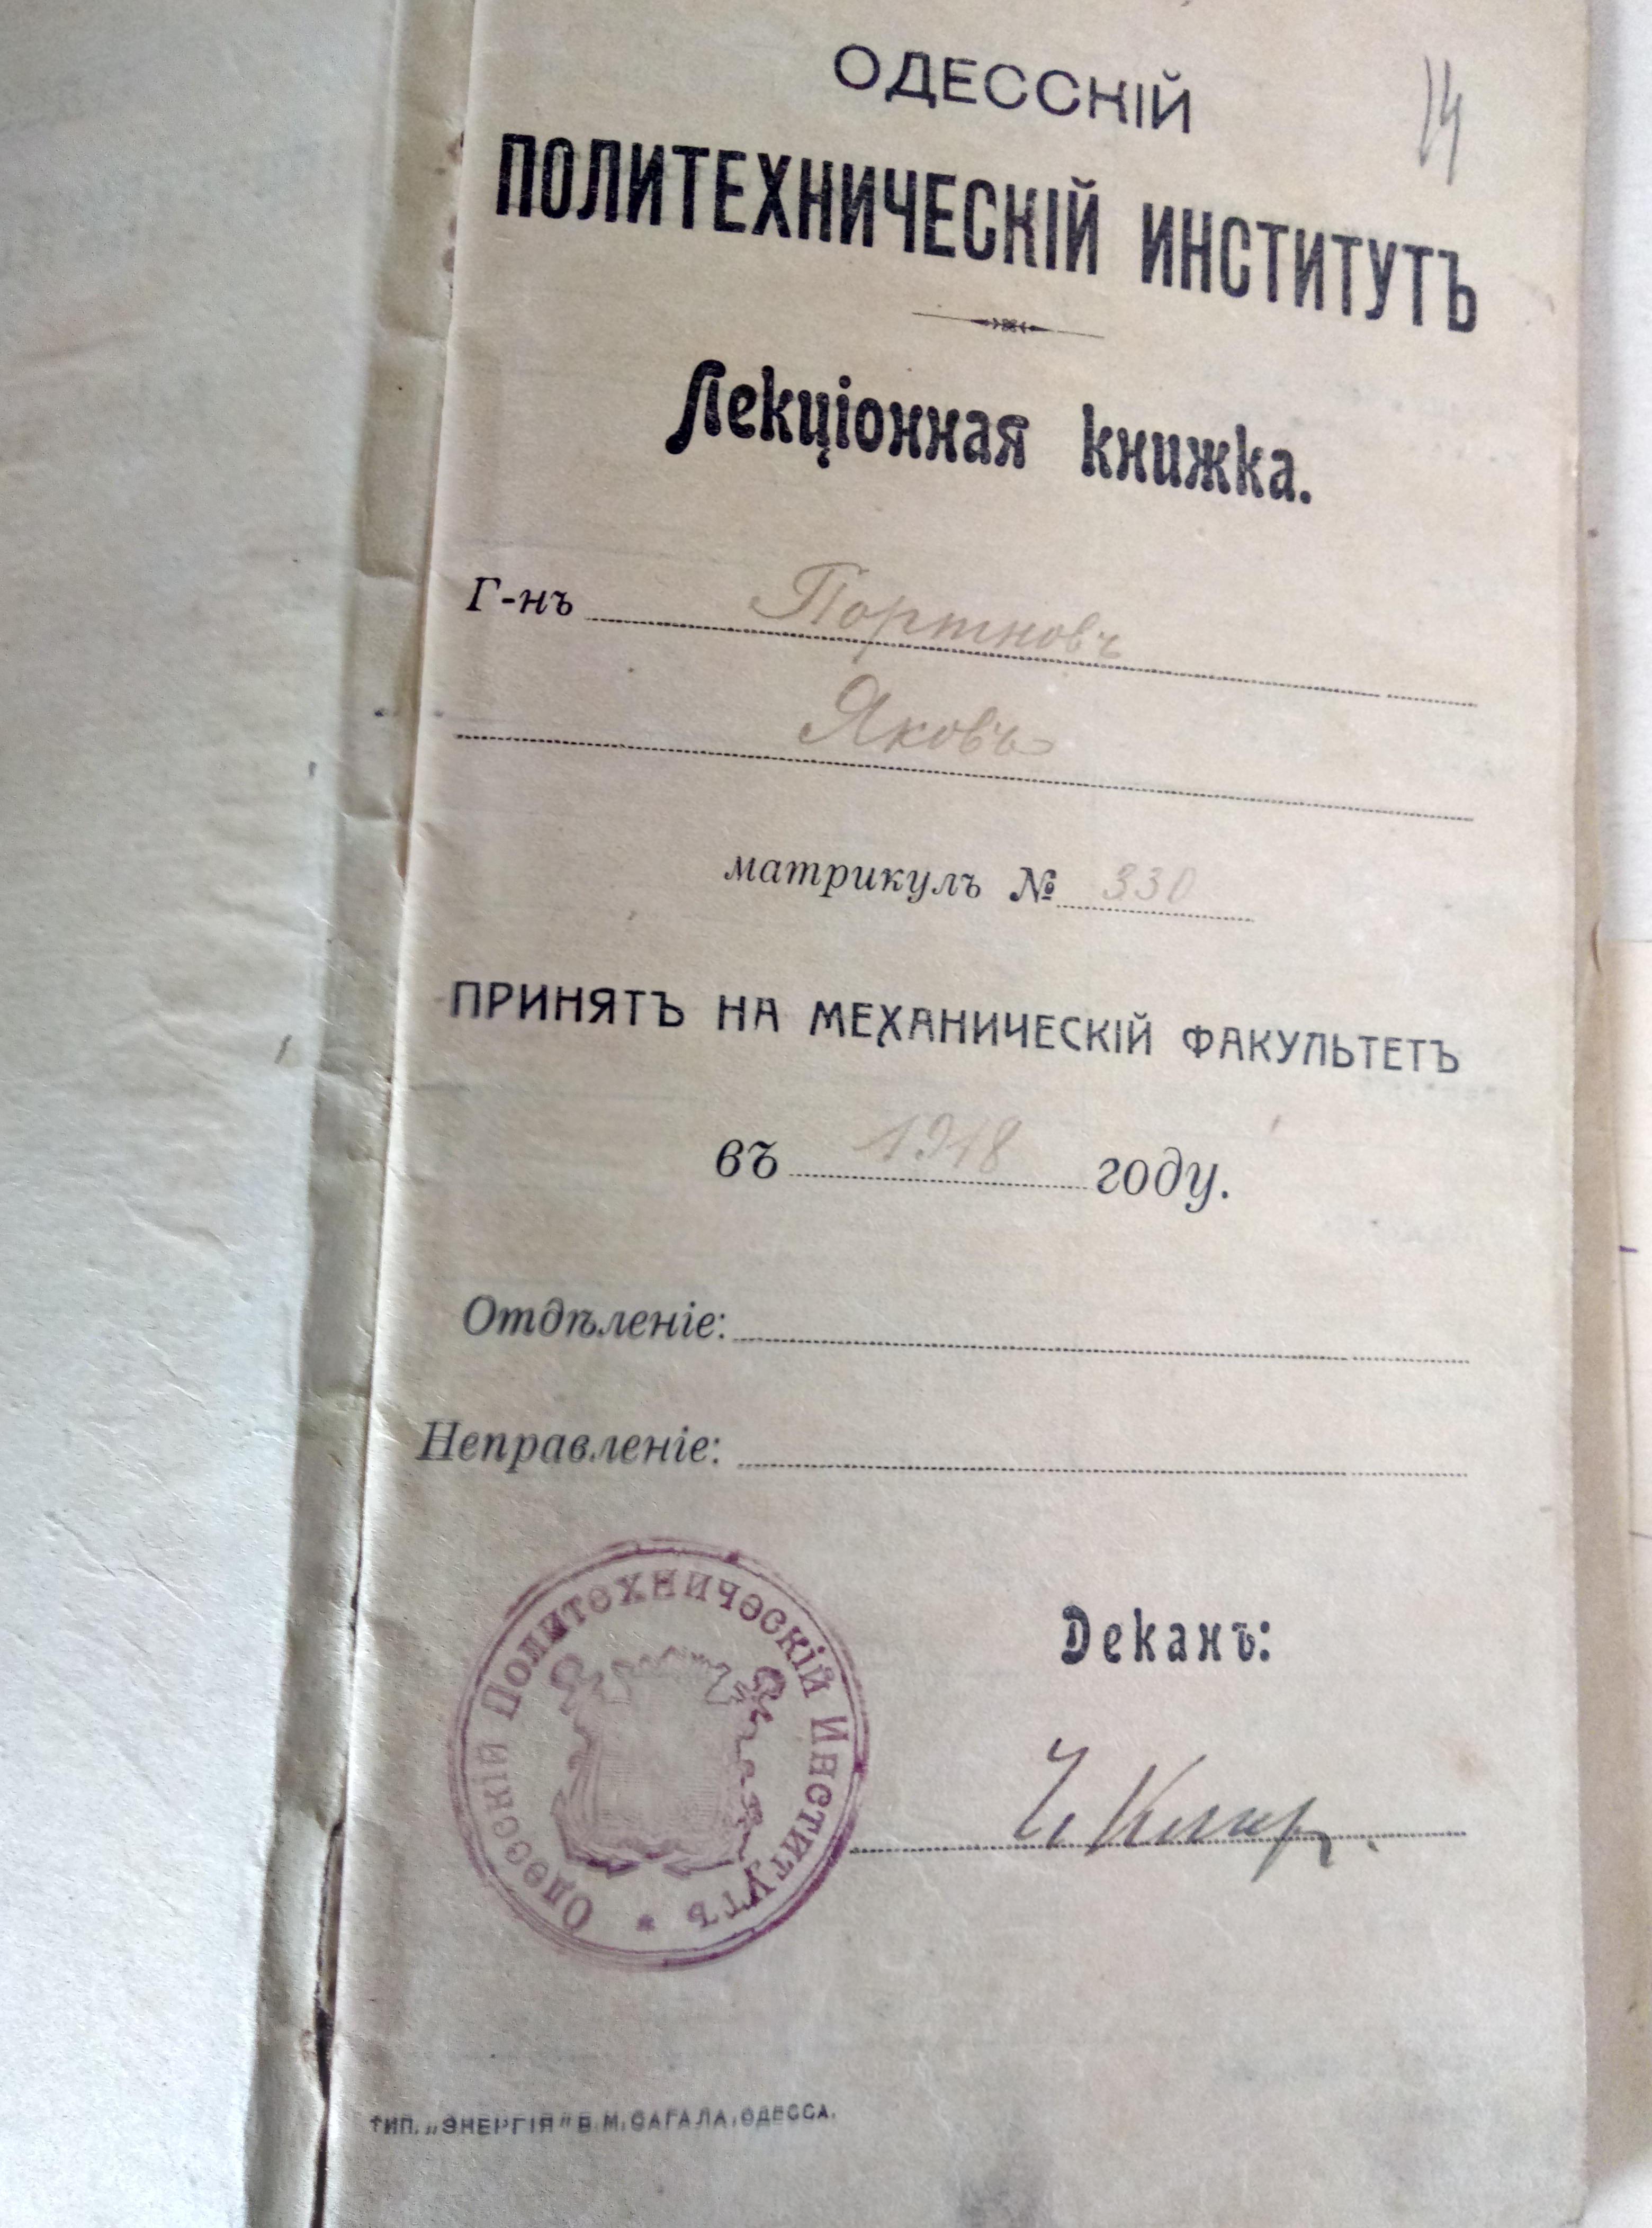 14
ОДЕССКІЙ
ПОЛИТЕХНИЧЕСКІЙ ИНСТИТУТЪ
Лекціонная книжка.
Г-нъ Портновъ
Яковъ
матрикулъ № 330
ПРИНЯТЪ НА МЕХАНИЧЕСКІЙ ФАКУЛЬТЕТЪ
въ 1918 году.
Отдѣленіе:
Неправленіе:
Одесскій Политехническій Институтъ *
Деканъ:
ТИП. „ЭНЕРГІЯ" Б. М. САГАЛА, ОДЕССА.